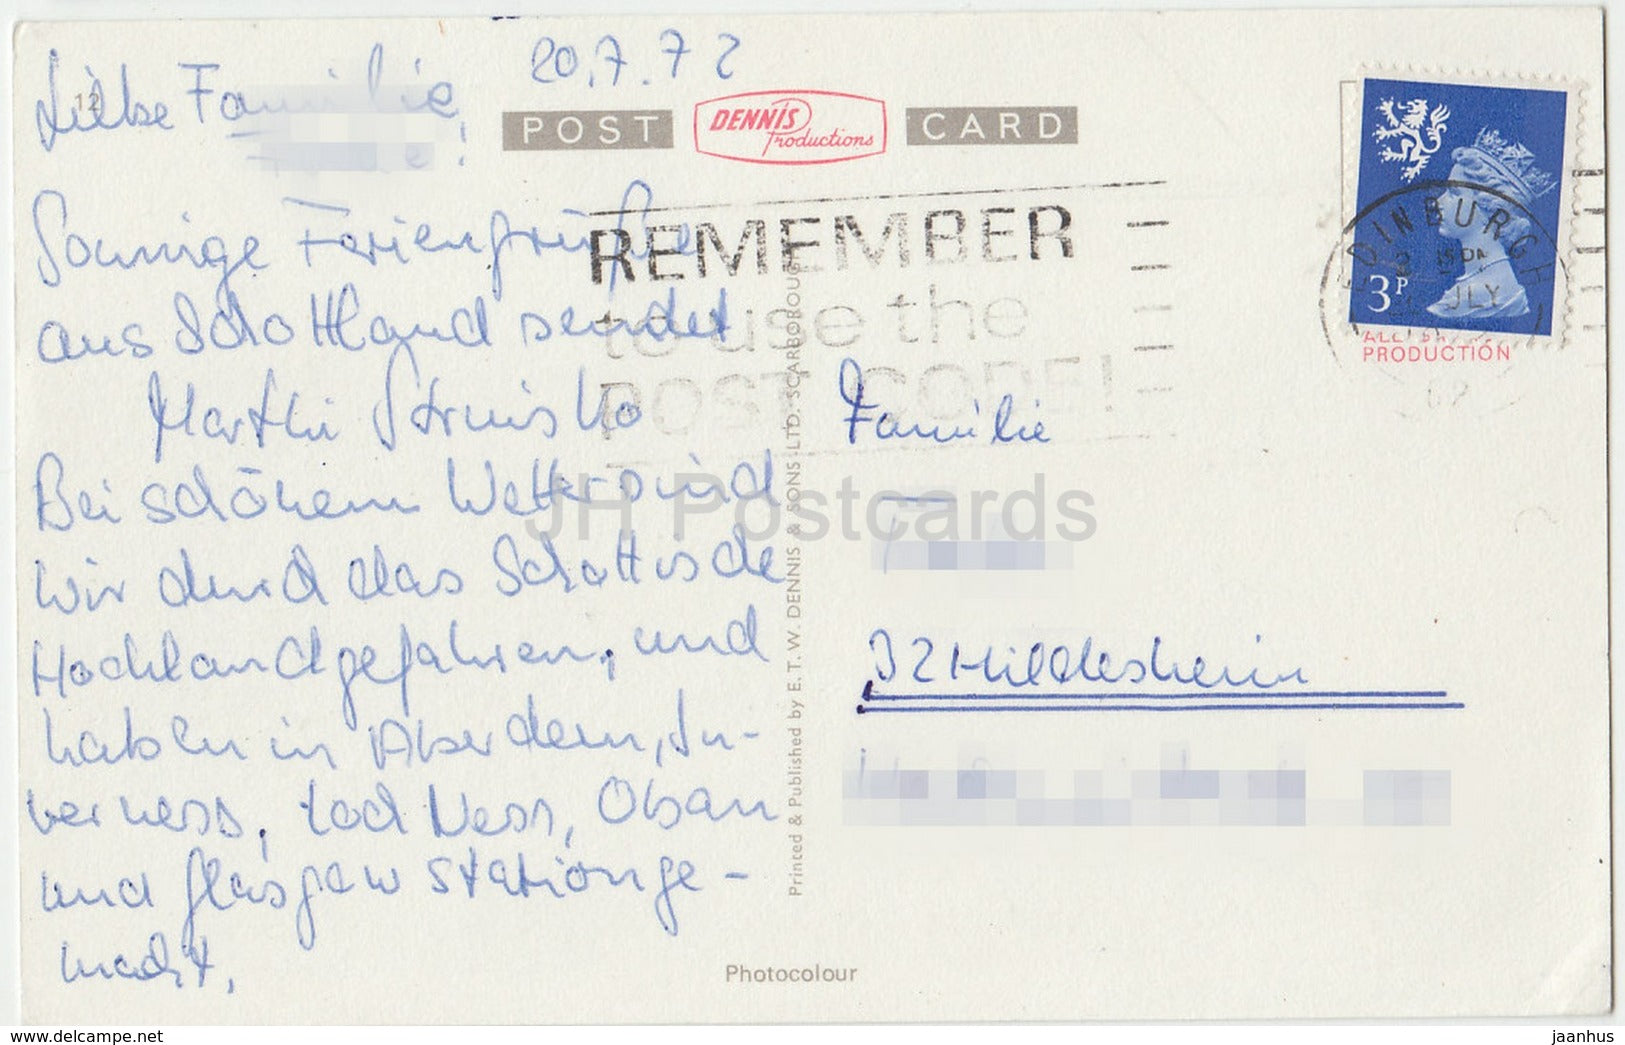 20.7.72
Liebe Familie
12
POST DENNIS Productions CARD
Sonnige Feriengrüße
aus Schottland sendet
Bei schönem Wetter sind
wir durch das Schottische
Hochland gefahren, und
haben in Aberdeen, In-
verness, Loch Ness, Oban
und Glasgow Station ge-
macht.
REMEMBER
to use the
POST CODE!
EDINBURGH
JLY
3P
PRODUCTION
Familie
32 Hildesheim
Printed & Published by E. T. W. DENNIS & SONS LTD. SCARBOROUGH
Photocolour
JH Postcards
https://www.delcampe.net
jaanhus